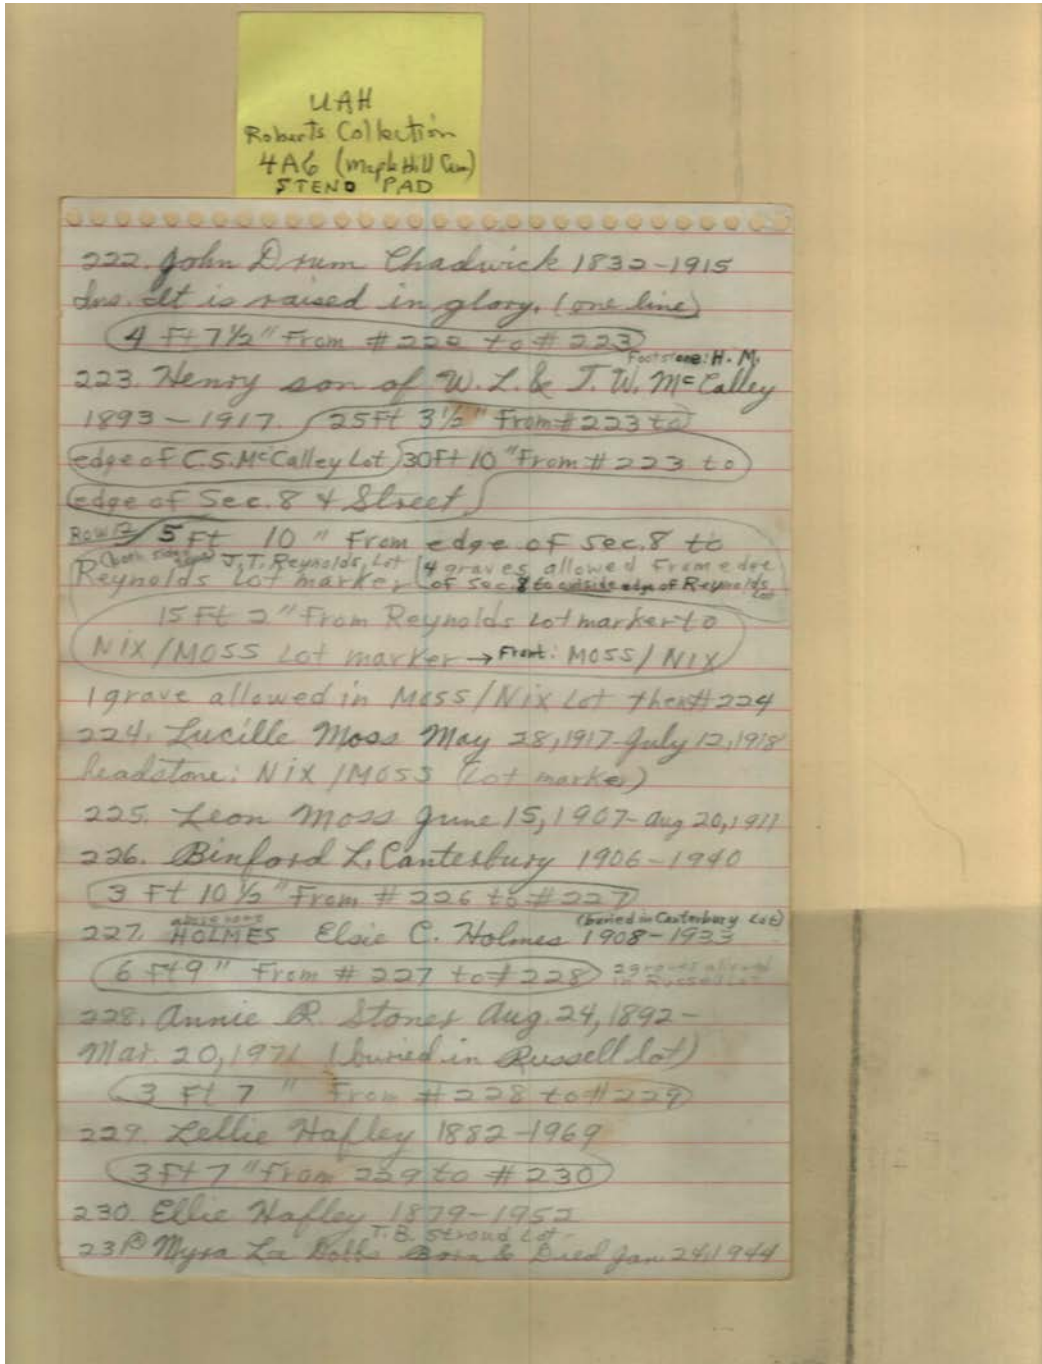 UAH
Roberts Collection
4A6 (Maple Hill Cem)
STENO PAD
222. John Drum Chadwick 1832-1915
Ins. It is raised in glory. (one line)
4 Ft 7½" From #222 to #223
Footstone: H. M.
223. Henry son of W. L. & J. W. McCalley
1893-1917. 25 Ft 3½" From #223 to
edge of C.S. McCalley Lot 30 Ft 10" From #223 to
edge of Sec. 8 & Street
Row 12 5 Ft 10" From edge of Sec. 8 to
(both sides) J. T. Reynolds Lot 4 graves allowed From edge
Reynolds Lot marker of Sec. 8 to outside edge of Reynolds Lot
15 Ft 2" From Reynolds Lot marker to
NIX/MOSS Lot marker → Front: MOSS/NIX
1 grave allowed in Moss/Nix Lot then #224
224. Lucille Moss May 28, 1917-July 12, 1918
headstone: NIX/MOSS (Lot marker)
225. Leon Moss June 15, 1907-Aug 20, 1911
226. Binford L. Canterbury 1906-1940
3 Ft 10½" From #226 to #227
above name (buried in Canterbury Lot)
227. HOLMES Elsie C. Holmes 1908-1933
6 Ft 9" From #227 to #228 2 graves allowed in Russell Lot
228. Annie R. Stoner Aug. 24, 1892-
Mar. 20, 1971 (buried in Russell lot)
3 Ft 7" From #228 to #229
229. Lellie Hafley 1882-1969
3 Ft 7" From 229 to #230
230. Ellie Hafley 1879-1952
T. B. Stroud Lot
231 Myra La Dobbs Born & Died Jan. 24, 1944